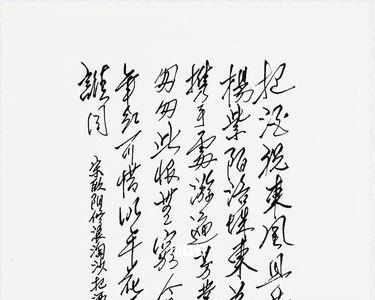 把酒祝東風且
楊紫陌洛城東
携手處游遍芳
匆匆此恨無窮今
年紅可惜明年花
誰同
宋欧阳修浪淘沙把酒